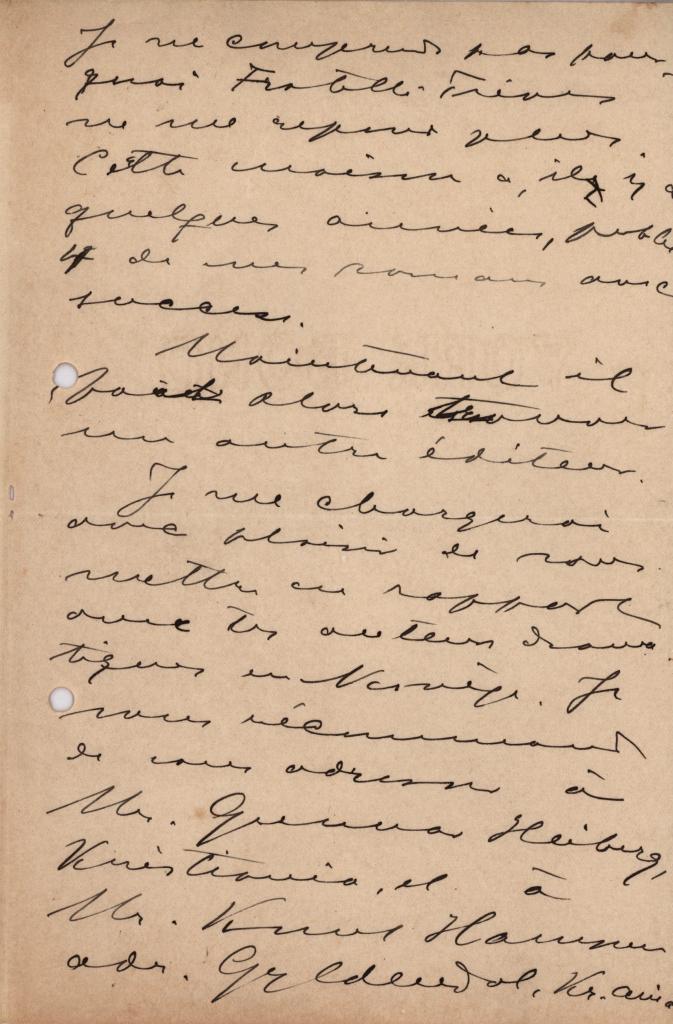 Je ne comprends pas pour-
quoi Fratelli Treves
ne me repond plus.
Cette maison a, il y a
quelques années, publié
4 de mes romans avec
success.
Maintenant il
faut alors trouver
un autre éditeur.
Je me chargerai
avec plaisir de vous
mettre en rapport
avec les auteurs drama-
tiques en Norvège. Je
vous récommand
de vous adresser à
Mr. Gunnar Heiberg,
Kristiania, et à
Mr. Knut Hamsun
adr. Gyldendal, Kr.ania